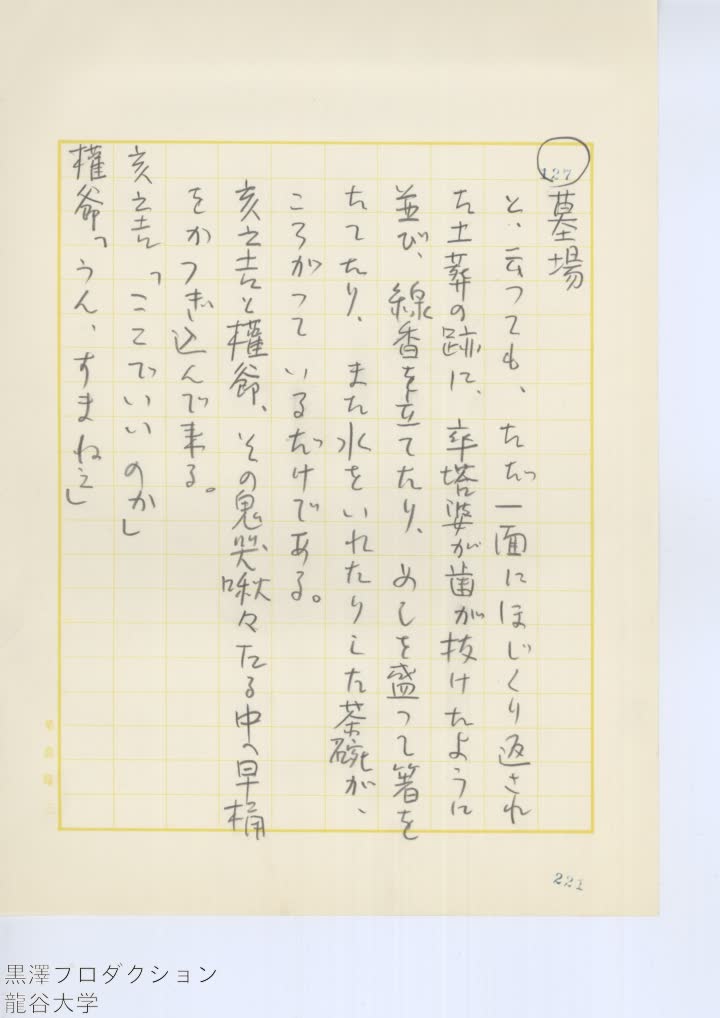 127
墓場
と云つても、ただ一面にほじくり返され
た土葬の跡に、卒塔婆が歯が抜けたように
並び、線香を立てたり、めしを盛つて箸を
たてたり、また水をいれたりした茶碗が、
ころがつているだけである。
亥之吉と権爺、その鬼哭啾々たる中へ早桶
をかつぎ込んで来る。
亥之吉「ここでいいのか」
權爺「うん、すまねえ」
221
黒澤プロダクション
龍谷大学